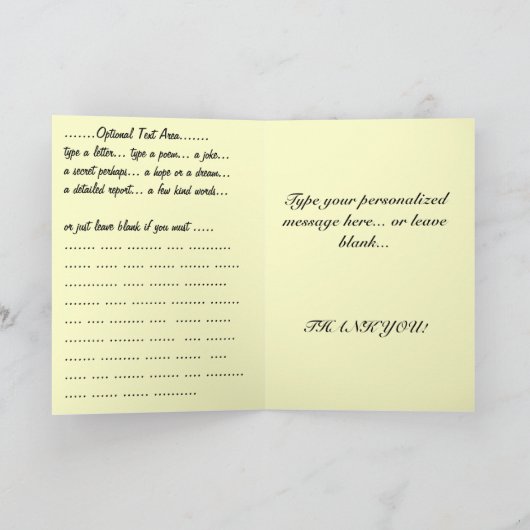 .......Optional Text Area.......
type a letter... type a poem... a joke...
a secret perhaps... a hope or a dream...
a detailed report... a few kind words...
or just leave blank if you must .....
....... ...... ....... .... ..........
...... ..... ...... ....... .......
..... ...... ...... ....... ......
...... ...... ...... ...... .......
.... .... ......... ..... ... ....
..... ....... ...... ......  ....
...... ........ ...... ......  ...
..... .... ...... .... ... .........
..... ...... ...... ..........
Type your personalized
message here... or leave
blank...
THANK YOU!